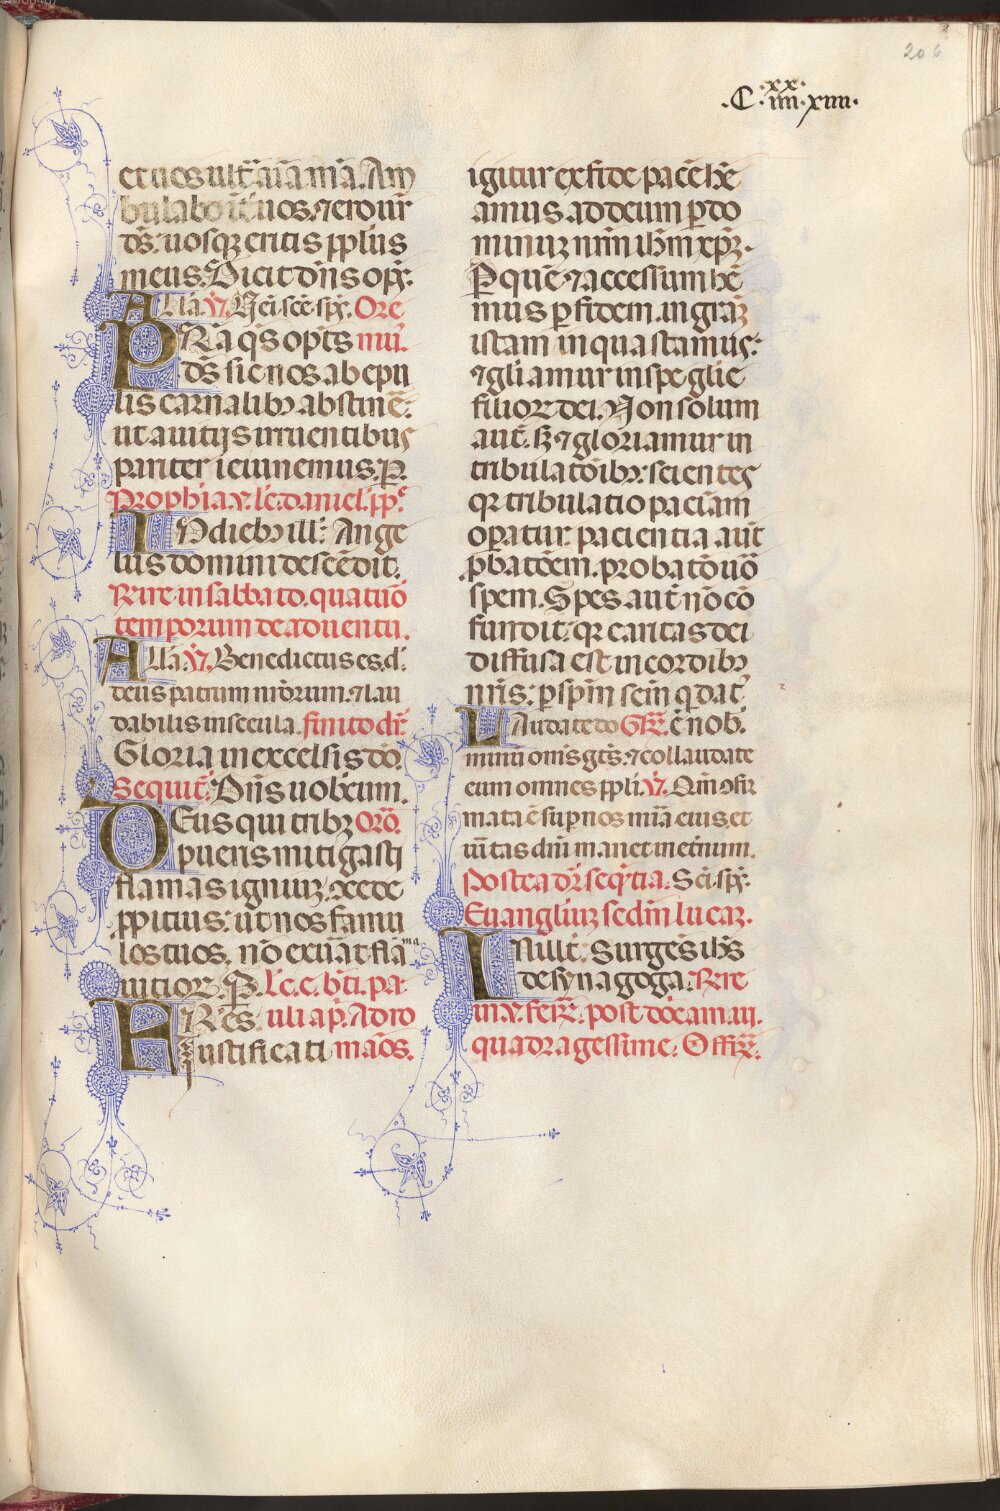 206
.C. xx iiii. xiiii.
et uos ult̄ aīa mā. Am
bulabo īt̄ uos. ⁊ ero ur̄
ds̄. uosqꝫ eritis pp̄lus
meus. Dicit dn̄s op̄s.
Alla. ℣. Ueī scē sps̄. Ore
PRā qs̄ opt̄s mū.
ds̄. sic nos ab epu
lis carnalibꝫ abstinē:
ut a uitijs irruentibus
pariter ieiunemus. P.
Prophīa. Y. lc̄. daniel. ppē
In diebꝫ ill̄. Ange
lus domini descēdit.
Rꝛire in sabbato. quatuō
temporum de aduentu.
Alla. ℣. Benedictus es. d.
deus patrum nrōrum. ⁊ lau
dabilis in secula. finito dr̄.
Gloria in excelsis do.
Sequit̄. Dn̄s uobcum.
Deus qui tribꝫ Orō.
pueris mitigasti
flamas igniuꝫ. ↄcede
ꝓpitius: ut nos famu
los tuos. nō exurat flāma
uitioꝝ. P. Lc. e. bt̄i. pa
FRes. uli ap̄. Ad ro
Iustificati manos.
igitur ex fide pacē hē
amus ad deum p̄ do
minuꝫ nr̄m ih̄m xp̄ꝫ.
P quē ⁊ accessum hē
mus p̄ fidem. in grāꝫ
istam in qua stamus:
⁊ gl̄iamur in spe glīe
filioꝝ dei. Non solum
aut̄. sꝫ ⁊ gloriamur in
tribulatōibꝫ: scientes
qꝛ tribulatio paciam
operatur: paciencia aut̄
ꝓbatōem. probato uō
spem. Spes aut̄ nō cō
fundit: qꝛ caritas dei
diffusa est in cordibꝫ
nr̄is: p̄ spm̄ scm̄ q̄ dat̄
Laudate do Gꝛ. ē nob.
minū om̄s gt̄s. ⁊ collaudate
eum omnes pp̄li. ℣. Qm̄ ↄfir
mata ē sup̄ nos mīa eius. et
ūitas dn̄i manet in et̄num.
Postea dr̄ seqn̄tia. Scī. sps̄.
Euangliuꝫ scdm̄ lucaꝫ.
In illt̄. Surgēs ih̄s
de synagoga. Rꝛire
in. Y. ferꝫ. post dōcam. iii.
quadragesime. Offꝫ.